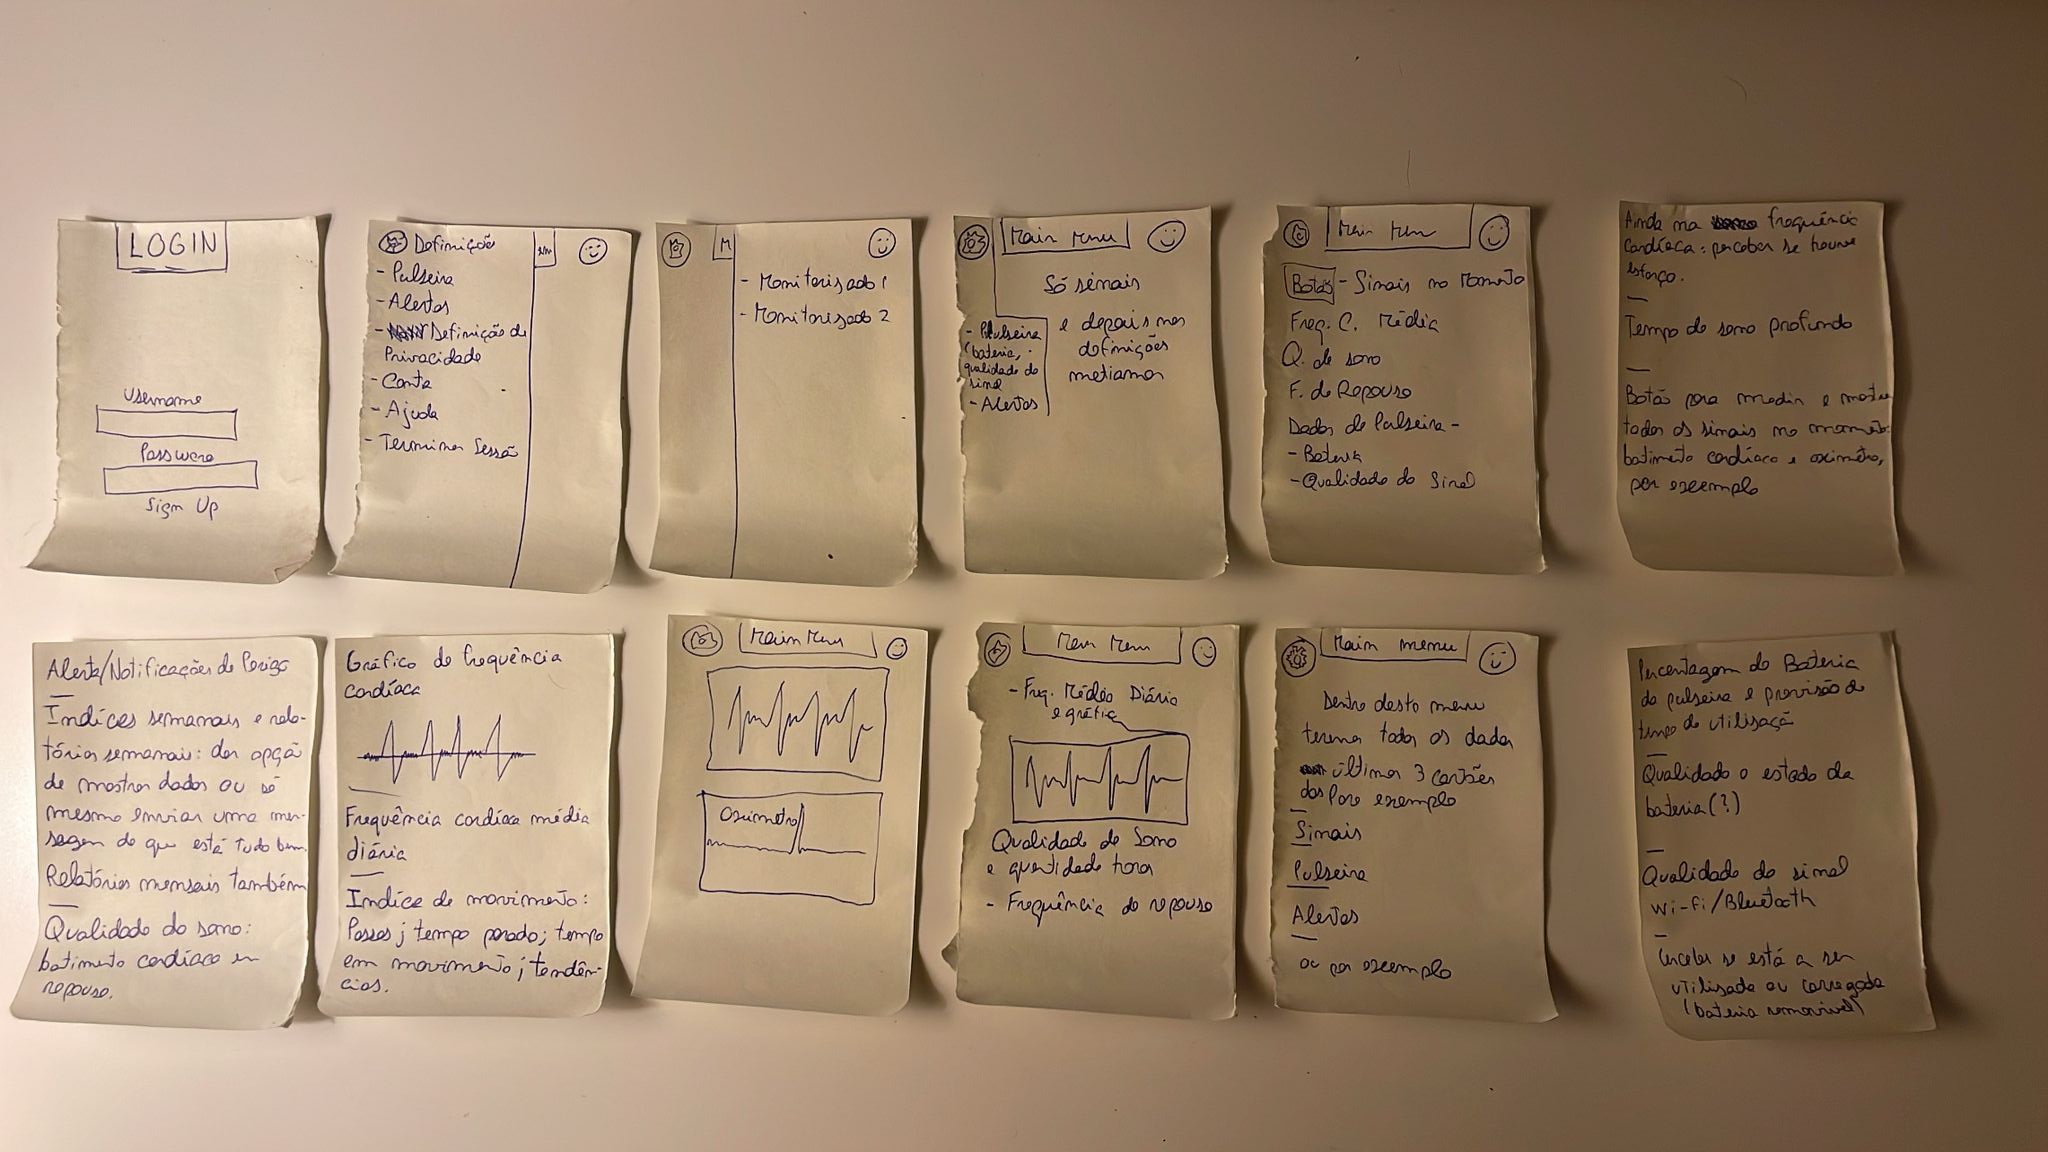 LOGIN
Username
Password
Sign Up
Definições
- Pulseira
- Alertas
- Definição de
Privacidade
- Conta
- Ajuda
- Terminar Sessão
M
- Monitorisado 1
- Monitorisado 2
Main Menu
Só sinais
e depois nas
definições
metiamos
- Pulseira
(bateria,
qualidade do
sinal
- Alertas
Main Menu
Botão - Sinais no Momento
Freq. C. Média
Q. de sono
F. de Repouso
Dados de Pulseira -
- Bateria
- Qualidade do Sinal
Ainda na frequência
cardíaca: perceber se houve
esforço.
Tempo de sono profundo
Botão para medir e mostrar
todos os sinais no momento:
batimento cardíaco e oximetro,
por exemplo
Alerta/Notificações de Perigo
Índices semanais e rela-
tórios semanais: dar opção
de mostrar dados ou só
mesmo enviar uma men-
sagem de que está tudo bem.
Relatórios mensais também
Qualidade do sono:
batimento cardíaco em
repouso.
Gráfico de frequência
cardíaca
Frequência cardíaca média
diária
Indice de movimento:
Passos; tempo parado; tempo
em movimento; tendên-
cias.
Main Menu
Oximetro
Main Menu
- Freq. Média Diária
e gráfico
Qualidade de Sono
e quantidade hora
- Frequência de repouso
Main menu
Dentro deste menu
temos todos os dados
últimos 3 cartões
dos Por exemplo
Sinais
Pulseira
Alertas
ou por exemplo
Percentagem de Bateria
da pulseira e previsão de
tempo de utilização
Qualidade e estado da
bateria (?)
Qualidade do sinal
Wi-fi/Bluetooth
se está a ser
utilisada ou carregada
(bateria removivel)